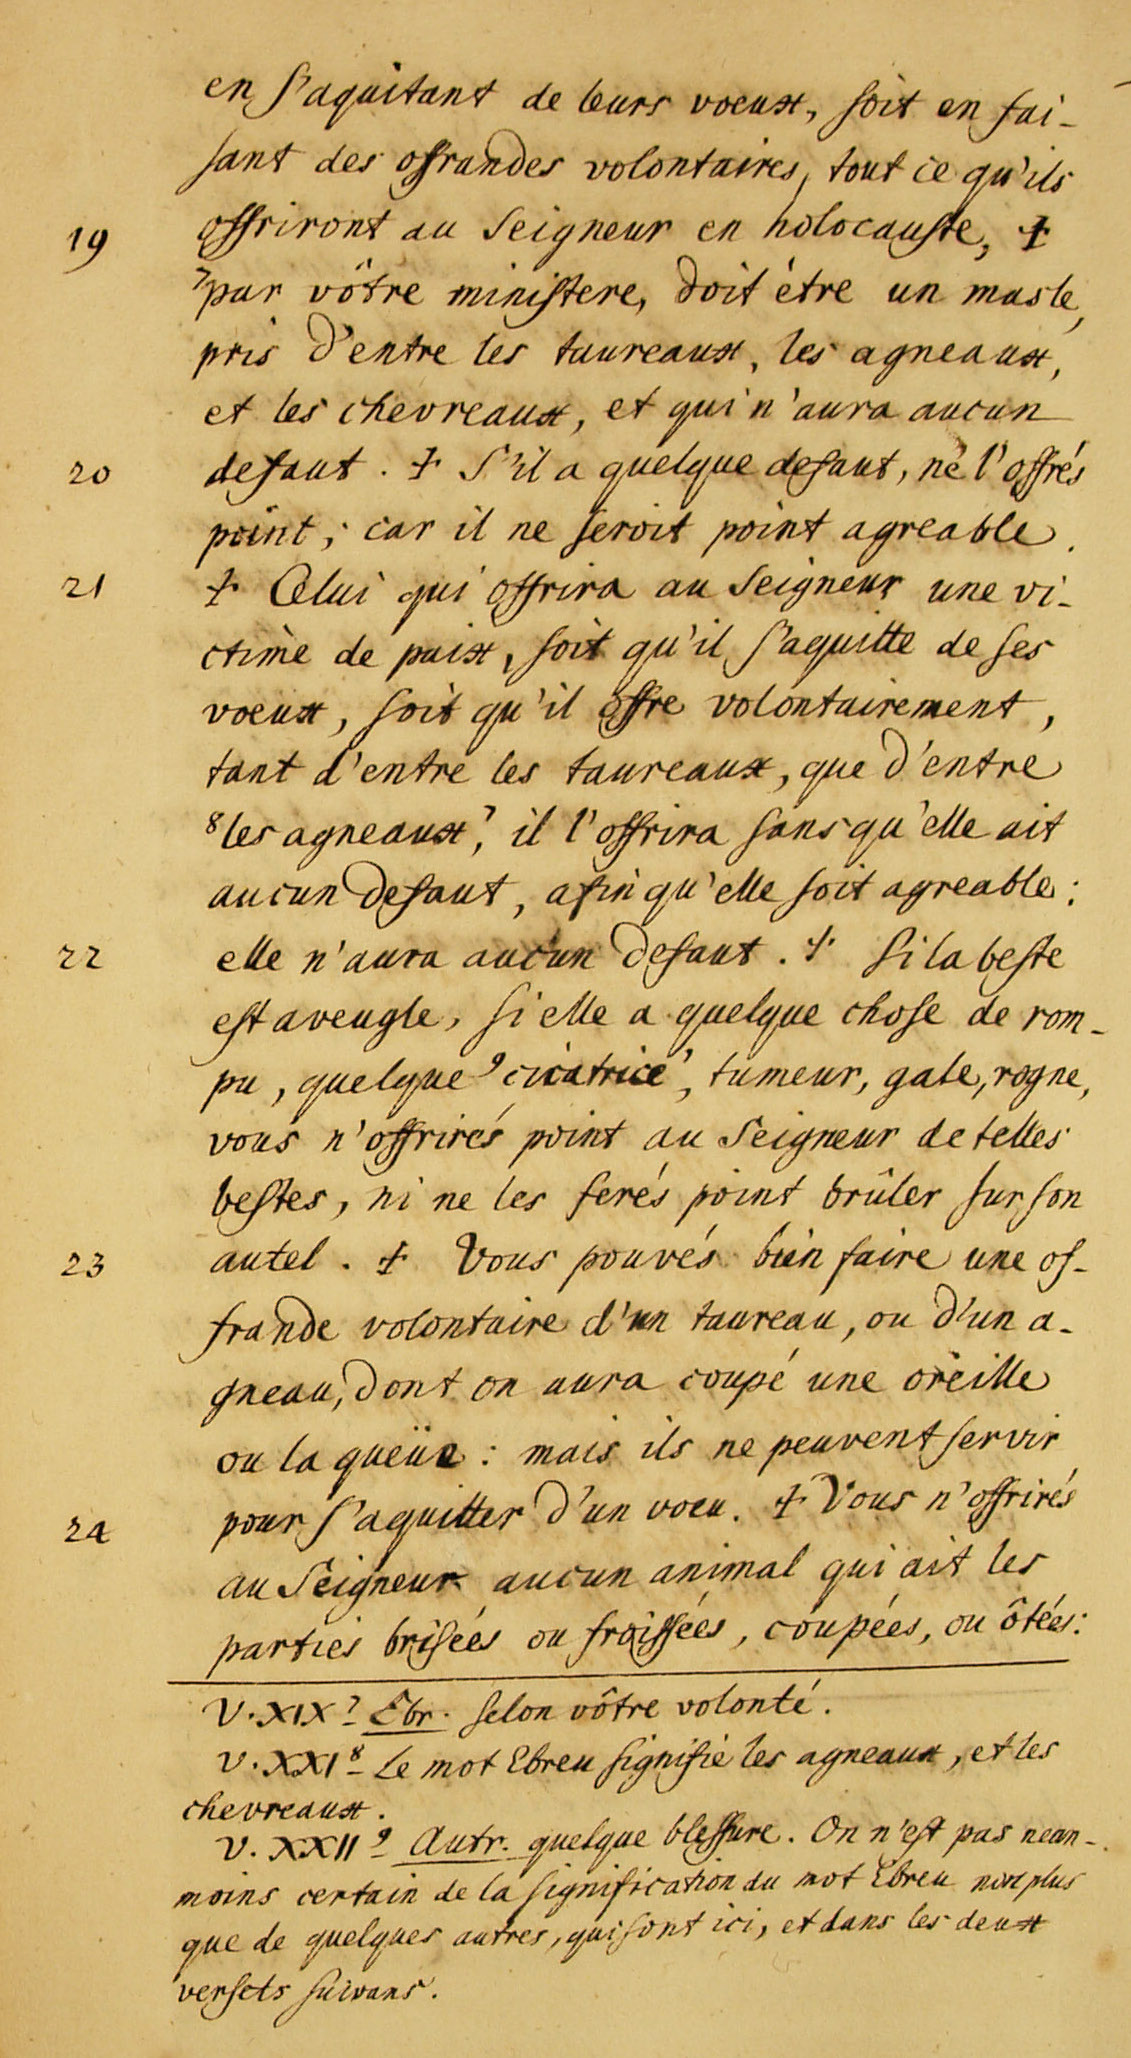 en s'aquitant de leurs voeux, soit en fai-
sant des offrandes volontaires, tout ce qu'ils
19 offriront au Seigneur en holocauste, +
⁷par vôtre ministere, doit être un masle,
pris d'entre les taureaux, les agneaux,
et les chevreaux, et qui n'aura aucun
20 defaut. + S'il a quelque defaut, ne l'offrés
point; car il ne seroit point agreable.
21 + Celui qui offrira au Seigneur une vi-
ctime de paix, soit qu'il s'aquitte de ses
voeux, soit qu'il offre volontairement,
tant d'entre les taureaux, que d'entre
⁸les agneaux', il l'offrira sans qu'elle ait
aucun defaut, afin qu'elle soit agreable:
22 elle n'aura aucun defaut. + Si la beste
est aveugle, si elle a quelque chose de rom-
pu, quelque ⁹cicatrice', tumeur, gale, rogne,
vous n'offrirés point au Seigneur de telles
bestes, ni ne les ferés point brûler sur son
23 autel. + Vous pouvés bien faire une of-
frande volontaire d'un taureau, ou d'un a-
gneau, dont on aura coupé une oreille
ou la queüe: mais ils ne peuvent servir
pour s'aquitter d'un voeu. + Vous n'offrirés
24 au Seigneur aucun animal qui ait les
parties brisées ou froissées, coupées, ou ôtées:
V. XIX ⁷ Ebr. selon vôtre volonté.
V. XXI ⁸ Le mot Ebreu signifie les agneaux, et les
chevreaux.
V. XXII ⁹ Autr. quelque blessure. On n'est pas nean-
moins certain de la signification du mot Ebreu non plus
que de quelques autres, qui sont ici, et dans les deux
versets suivans.